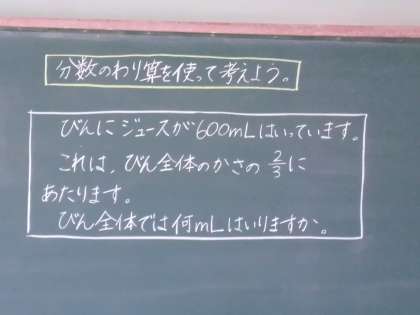 分数のわり算を使って考えよう。
びんにジュースが600mLはいっています。
これは、びん全体のかさの2/3に
あたります。
びん全体では何mLはいりますか。